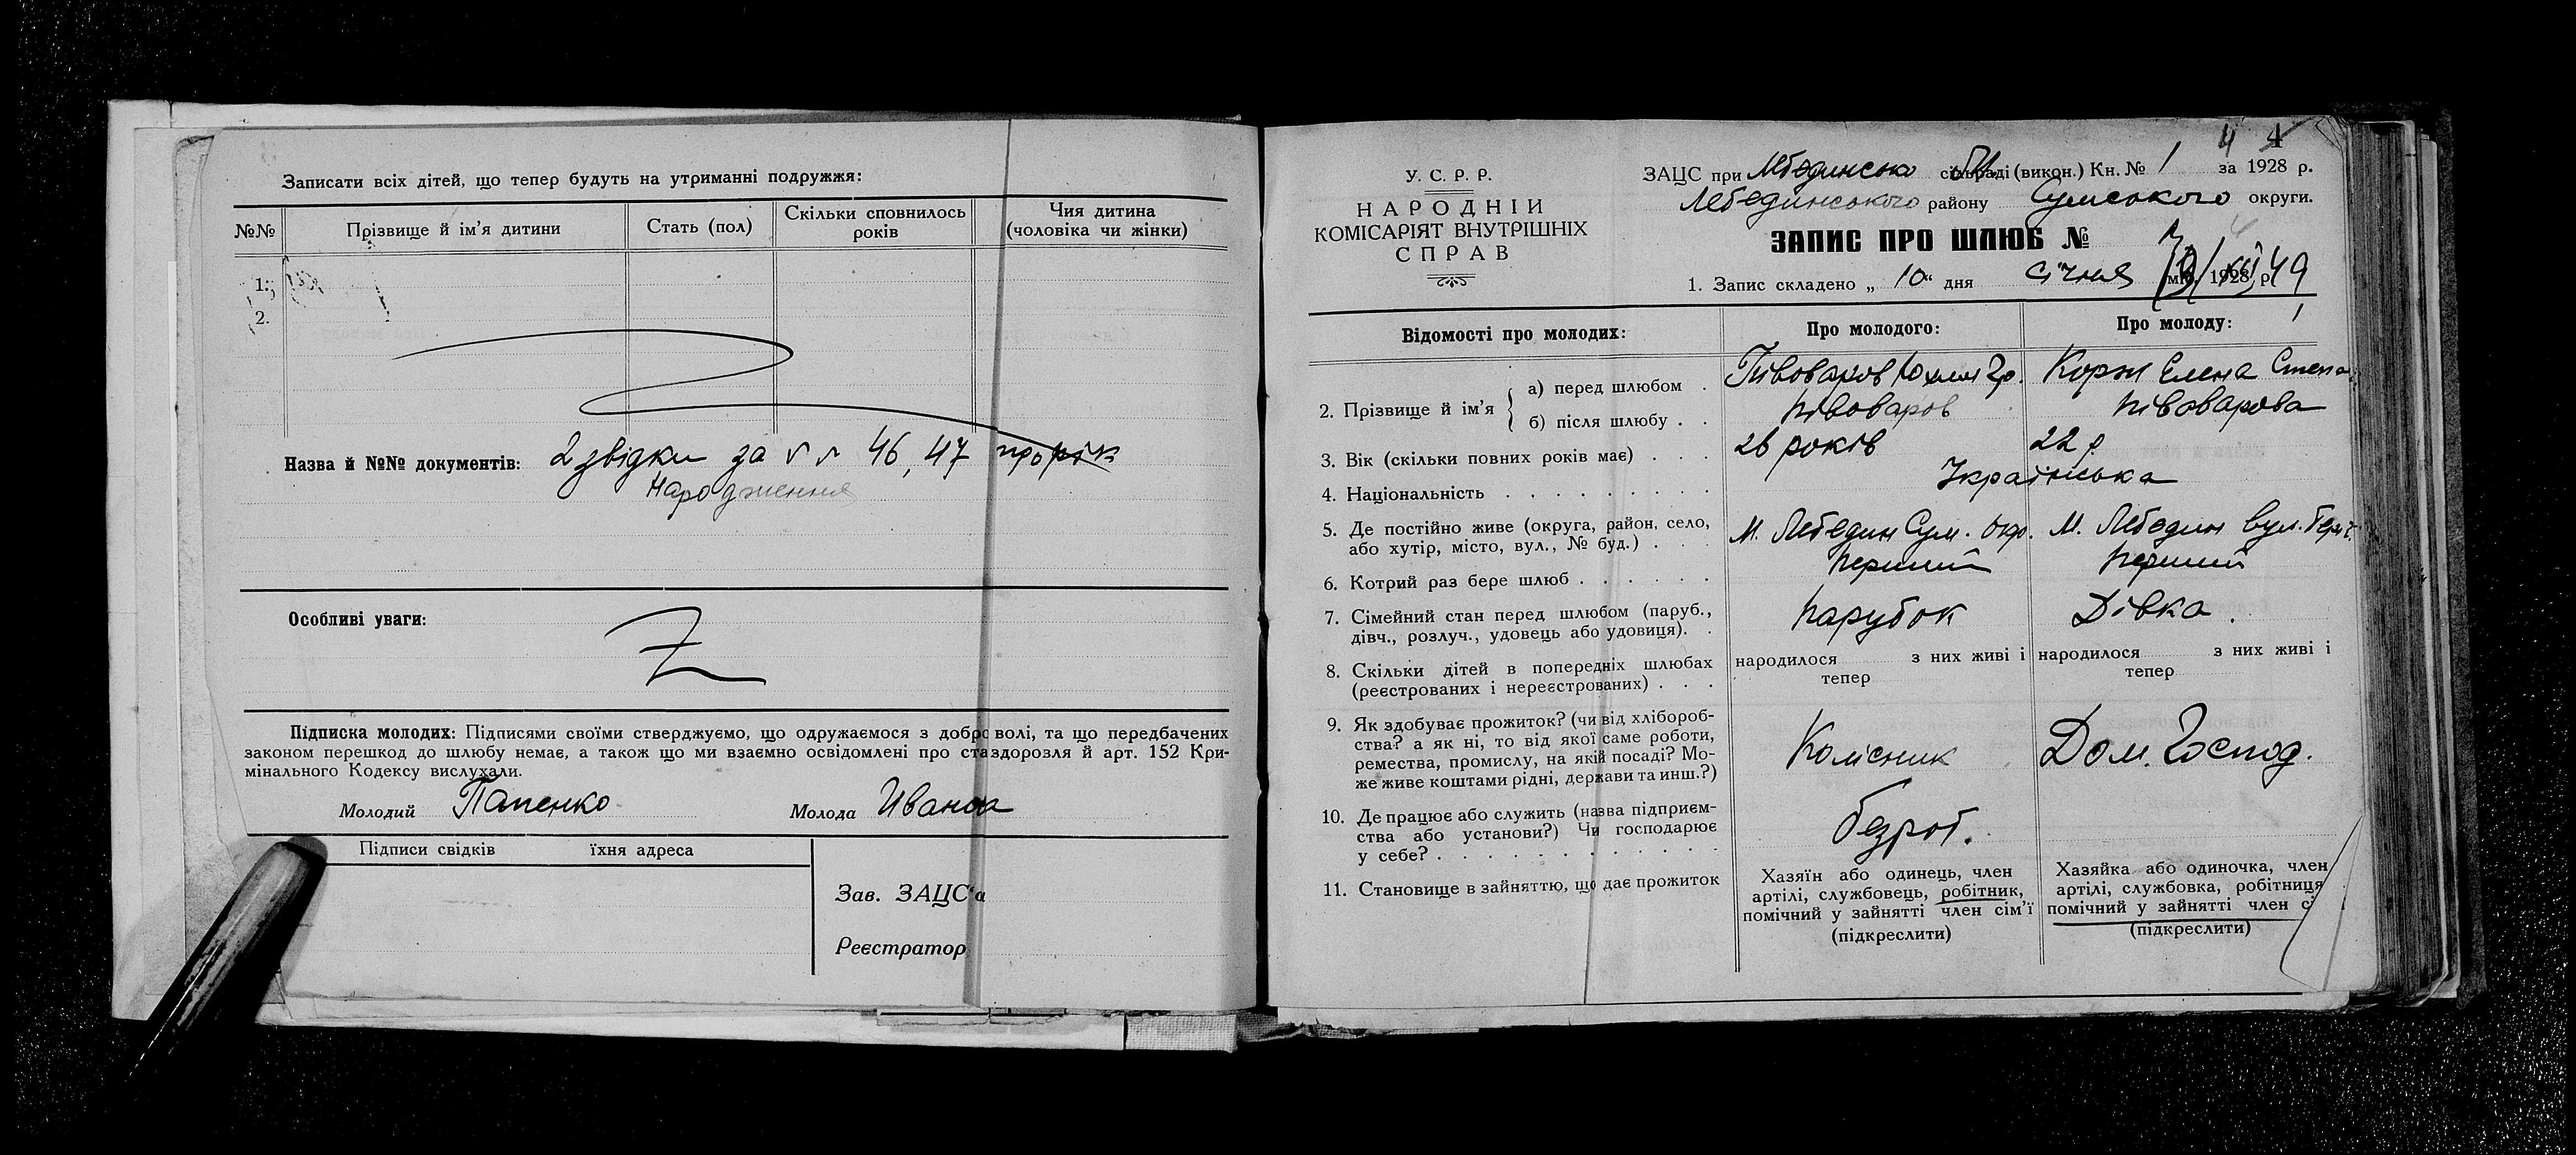 Записати всіх дітей, що тепер будуть на утриманні подружжя:
№№ Прізвище й ім'я дитини Стать (пол) Скільки сповнилось років Чия дитина (чоловіка чи жінки)
1.
2.
Назва й №№ документів: 2 звідки за 46, 47 про рік
народження
Особливі уваги:
Підписка молодих: Підписями своїми стверджуємо, що одружаємося з доброволі, та що передбачених
законом перешкод до шлюбу немає, а також що ми взаємно освідомлені про стан здоровля й арт. 152 Кри-
мінального Кодексу вислухали.
Молодий Папенко Молода Иванова
Підписи свідків їхня адреса
Зав. ЗАЦС'а
Реєстратор
4 4
У. С. Р. Р.
НАРОДНІЙ
КОМІСАРІЯТ ВНУТРІШНІХ
СПРАВ
ЗАЦС при Лебединськ сільраді (викон.) Кн. № 1 за 1928 р.
Лебединського району Сумського округи.
ЗАПИС ПРО ШЛЮБ № 4
1. Запис складено „ 10 “ дня січня міс. 1928 р.
Відомості про молодих: Про молодого: Про молоду:
2. Прізвище й ім'я
а) перед шлюбом . Півоваров Юхим Гр. Корж Елена Степа
б) після шлюбу . . Півоваров Півоварова
3. Вік (скільки повних років має) . . . 26 років 22 р
4. Національність . . . . . . . . . Українська
5. Де постійно живе (округа, район, село,
або хутір, місто, вул., № буд.) . . . М. Лебедин Сум. окр. М. Лебедин вул.
6. Котрий раз бере шлюб . . . . . . Перший Перший
7. Сімейний стан перед шлюбом (паруб.,
дівч., розлуч., удовець або удовиця). . Парубок Дівка.
8. Скільки дітей в попередніх шлюбах
(реєстрованих і нереєстрованих) . . . народилося з них живі і тепер народилося з них живі і тепер
9. Як здобуває прожиток? (чи від хлібороб-
ства? а як ні, то від якої саме роботи,
ремества, промислу, на якій посаді? Мо-
же живе коштами рідні, держави та инш.?) Колісник Дом. Господ.
10. Де працює або служить (назва підприєм-
ства або установи?) Чи господарює
у себе? . . . . . . . . . . . безроб.
11. Становище в зайняттю, що дає прожиток
Хазяїн або одинець, член
артілі, службовець, робітник,
помічний у зайнятті член сім'ї
(підкреслити)
Хазяйка або одиночка, член
артілі, службовка, робітниця
помічний у зайнятті член сі
(підкреслити)